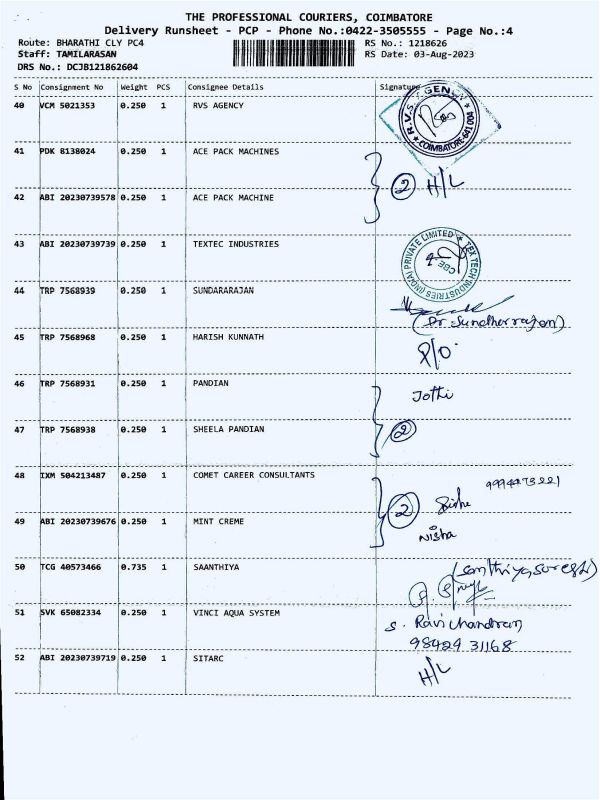 THE PROFESSIONAL COURIERS, COIMBATORE
Delivery Runsheet - PCP - Phone No.:0422-3505555 - Page No.:4
Route: BHARATHI CLY PC4 RS No.: 1218626
Staff: TAMILARASAN RS Date: 03-Aug-2023
DRS No.: DCJB121862604
S No Consignment No Weight PCS Consignee Details Signature
40 VCM 5021353 0.250 1 RVS AGENCY
R.V.S. AGENCY
COIMBATORE-641 004
41 PDK 8138024 0.250 1 ACE PACK MACHINES
2 H/L
42 ABI 20230739578 0.250 1 ACE PACK MACHINE
43 ABI 20230739739 0.250 1 TEXTEC INDUSTRIES
TEX TECH INDUSTRIES (INDIA) PRIVATE LIMITED
CBE
44 TRP 7568939 0.250 1 SUNDARARAJAN
(Dr. Sundherrajan)
45 TRP 7568968 0.250 1 HARISH KUNNATH
P/O
46 TRP 7568931 0.250 1 PANDIAN
Jothi
47 TRP 7568938 0.250 1 SHEELA PANDIAN
2
48 IXM 504213487 0.250 1 COMET CAREER CONSULTANTS
2
49 ABI 20230739676 0.250 1 MINT CREME
Nisha
50 TCG 40573466 0.735 1 SAANTHIYA
(Santhiya Suresh)
51 SVK 65082334 0.250 1 VINCI AQUA SYSTEM
S. Ravichandran
98424 31168
52 ABI 20230739719 0.250 1 SITARC
H/L